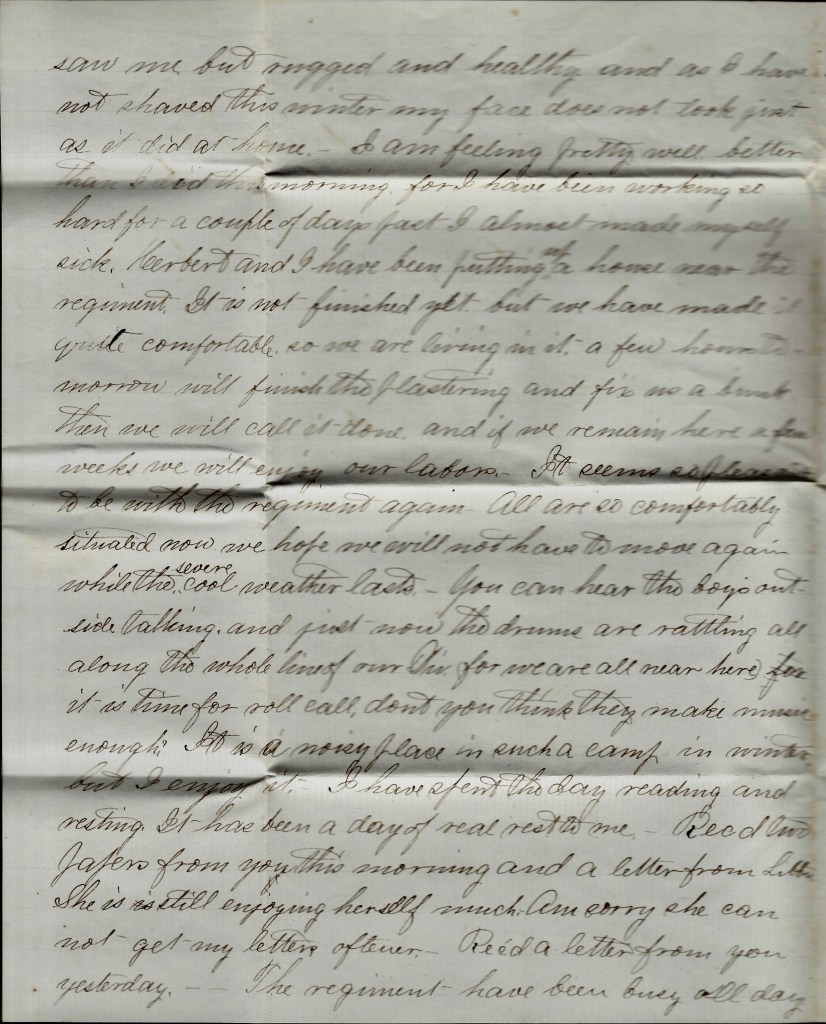 saw me but rugged and healthy and as I have
not shaved this winter my face does not look just
as it did at home. - I am feeling pretty well. better
than I did this morning. for I have been working so
hard for a couple of days past I almost made myself
sick. Herbert and I have been putting up a house near the
regiment. It is not finished yet but we have made it
quite comfortable. so we are living in it. a few hours to-
morrow will finish the plastering and fix us a bunk
then we will call it done. and if we remain here a few
weeks we will enjoy our labors. - It seems so pleasant
to be with the regiment again - All are so comfortably
situated now we hope we will not have to move again
while the severe cool weather lasts. - You can hear the boys out-
side talking. and just now the drums are rattling all
along the whole line of our Div. (for we are all near here) for
it is time for roll call. dont you think they make music
enough? It is a noisy place in such a camp in winter
but I enjoy it. - I have spent the day reading and
resting. It has been a day of real rest to me. - Recd two
papers from you this morning and a letter from Libbie
She is is still enjoying herself much. Am sorry she can
not get my letters oftener. - Rec'd a letter from you
yesterday. - - The regiment have been busy all day